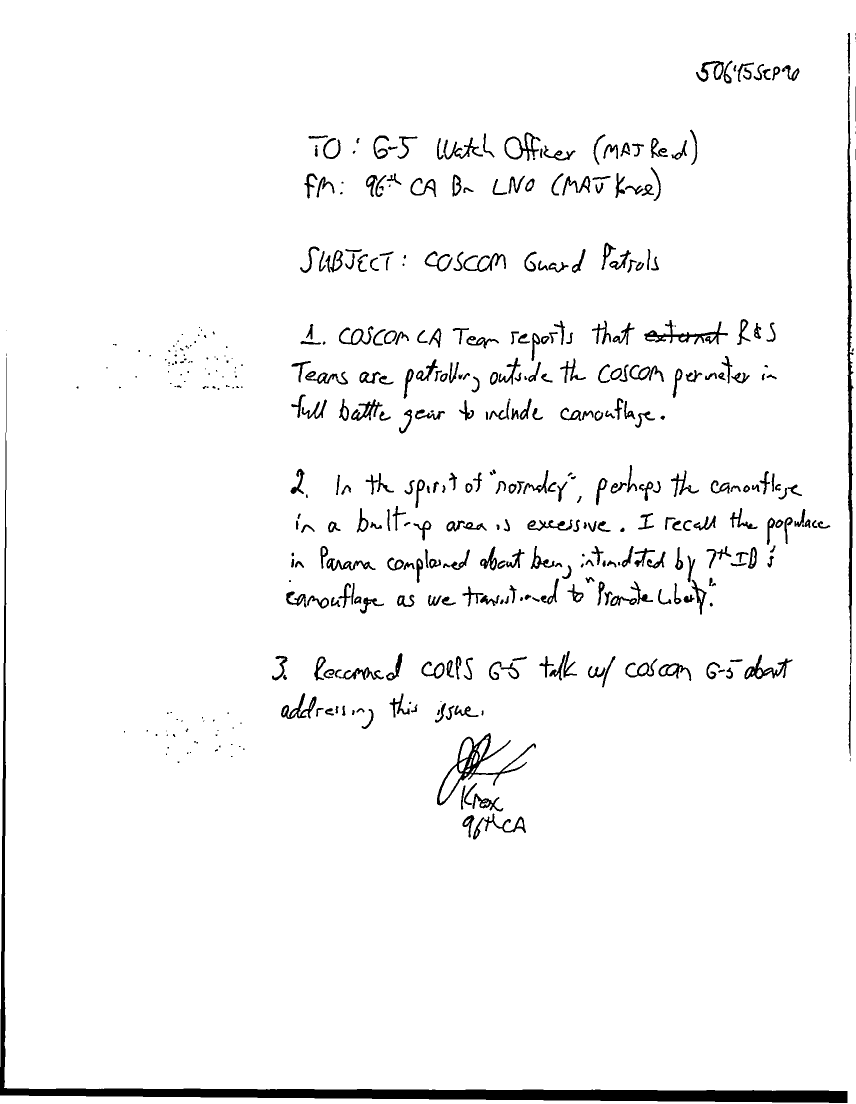 50645SEP90
TO: G-5 Watch Officer (MAJ Reid)
FM: 96th CA Bn LNO (MAJ Knox)
SUBJECT: COSCOM Guard Patrols
1. COSCOM CA Team reports that external R&S
Teams are patrolling outside the COSCOM perimeter in
full battle gear to include camouflage.
2. In the spirit of "normalcy", perhaps the camouflage
in a built-up area is excessive. I recall the populace
in Panama complained about being intimidated by 7th ID's
camouflage as we transitioned to "Promote Liberty".
3. Recommend CORPS G-5 talk w/ COSCOM G-5 about
addressing this issue.
Knox
96th CA